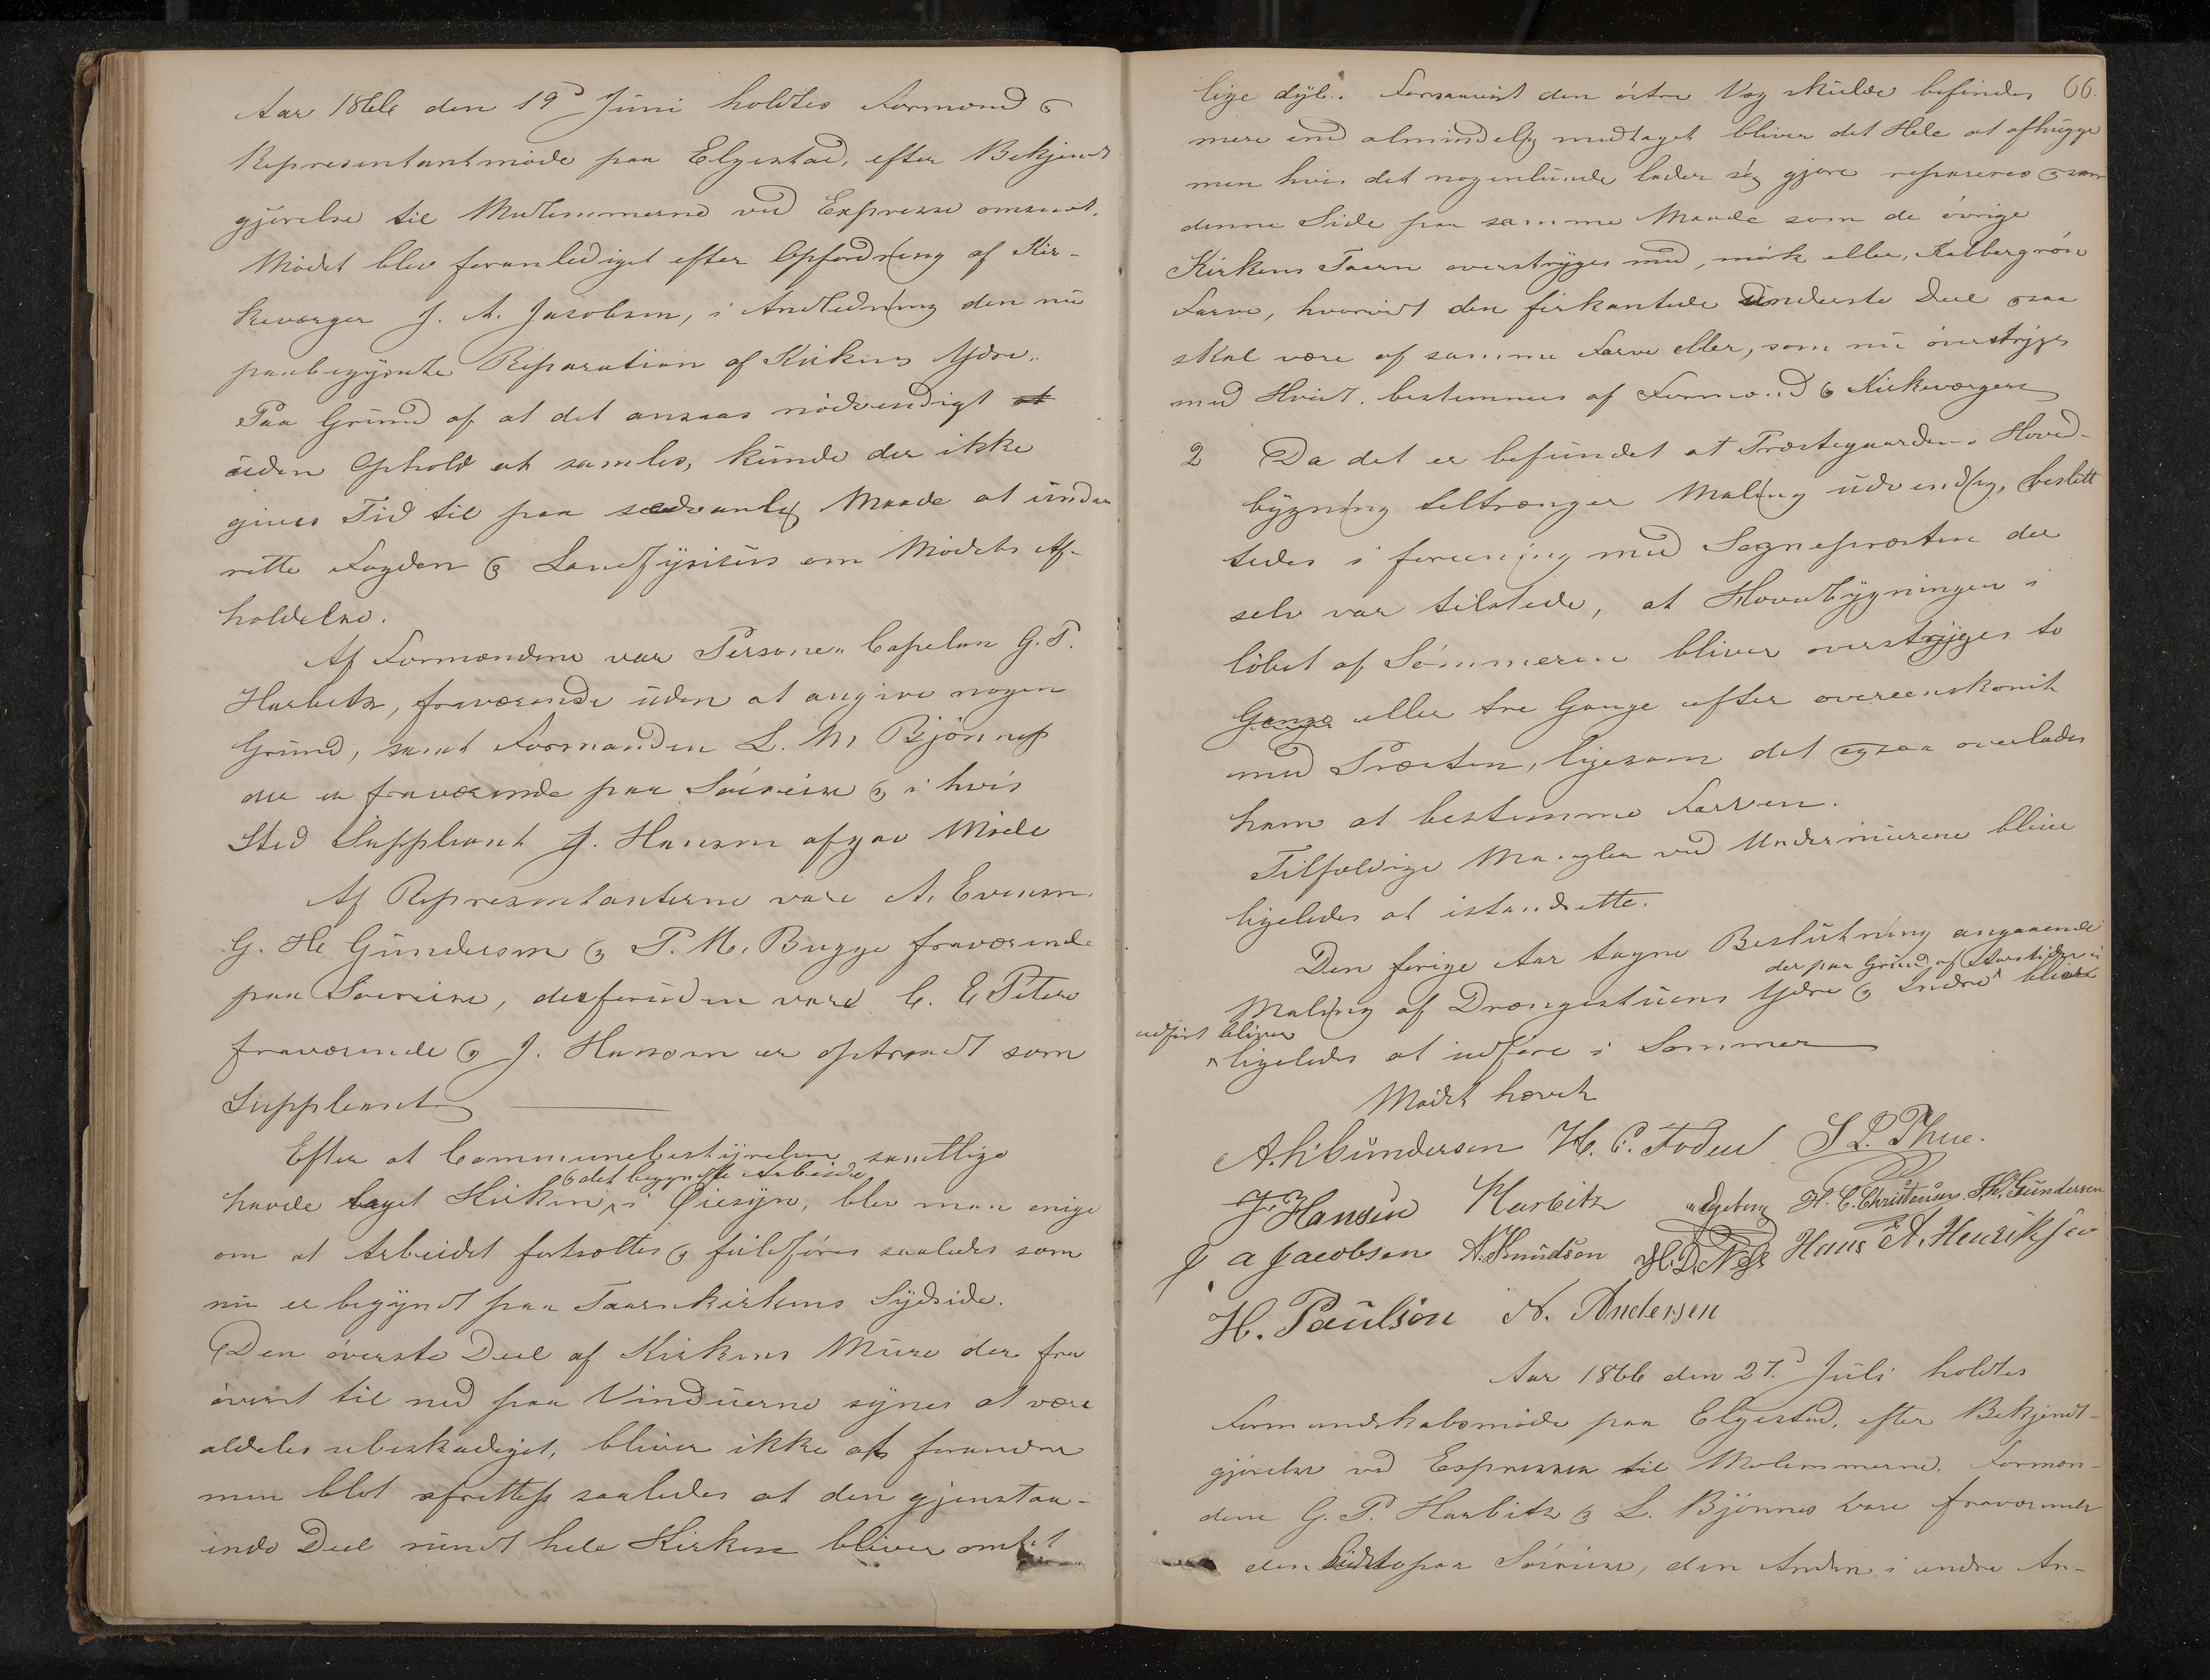 Aar 1866 den 19d Juni holdtes Formand &
Representantmöde paa Elgestad, efter Bekjendt
gjörelse til Medlemmerne ved Expresse omsendt.
Mödet blev foranlediget efter Opfordring af Kir-
keværger J. A. Jacobsen, i Andledning den nu
paabegyndte Reparation af Kirkens Ydre.
Paa Grund af at det ansaas nödvendigt at
uden Ophold at samles, kunde der ikke
gives Tid til paa sædvanlig Maade at under
rette Fogden & Landfysicus om Mödets Af-
holdelse.
Af Formændene var Personel Capelan G. P.
Harbitz, fraværende uden at angive nogen
Grund, samt Formanden L. M. Bjönnes
der er fraværende paa Söireise & i hvis
Sted Suppleant J. Hansen afgav Möde
Af Representanterne vare A. Evensen
G. H. Gundersen & P. M. Bugge fraværende
paa Soereise, desforuden vare C. E Peters
fraværende & J. Hansen er optraadt som
Suppleant
Efter at Communebestyrelsen samtlige
& det begyndte Arbeide
havde taget Kirken i Öiesyn, blev man enige
om at Arbeidet fortsættes & fuldföres saaledes som
nu er begyndt paa Taarnkirkens Sydside.
Den överste Deel af Kirkens Mure der fra
överst til ned paa Vinduerne synes at være
aldeles ubeskadiget, bliver ikke at forandre
men blot afrettes saaledes at den gjenstaa-
ende Deel rundt hele Kirken bliver omtrt
lige dyb. Forsaavidt den östre Væg skulde befindes 66.
mere end almindelig medtaget bliver det Hele at afhugge
men hvis det nogenlunde lader sig gjöre repareres ogsaa
denne Side paa samme Maade som de övrige
Kirkens Taarn overstryges med, mörk eller, Kalbergrön
Farve, hvorvidt den firkantede underste Deel ogsaa
skal være af samme Farve eller, som nu överstryges
med Hvidt. bestemmes af Formænd & Kirkeværgen
2 Da det er befundet at Præstegaardens Hoved-
bygning tiltrænger Maling udvendig, beslut
tedes i forening med Sognepræsten der
selv var tilstede, at Hovedbygningen i
löbet af Sommeren bliver overstryges to
Gange eller tre Gange efter overeenskomst
med Præsten, ligesom det ogsaa overlades
ham at bestemme Farven.
Tilfældige Mangler ved Undermurene bliver
ligeledes at istandsætte.
Den forige Aar tagne Beslutning angaaende
der paa Grund af Aarstiden ei
Maling af Drængestuens Ydre & Indre blev
udfört bliver
ligeledes at udföre i Sommer
Mödet hævet
A. H. Gundersen H. C. Foden S P. Thue.
J. Hansen Harbitz Egeberg H. C. Christensen Th. Gundersen
J a Jacobsen A. Knudsen H. D. Næss Hans A. Henriksen
H. Paulsön N. Andersen
Aar 1866 den 27. Juli holdtes
Formandskabsmöde paa Elgestad, efter Bekjendt-
gjörelse ved Expressen til Medlemmerne. Formæn-
dene G. P. Harbitz & L. Bjönnes vare fraværende
den sidste paa Söireise, den Anden i andre An-